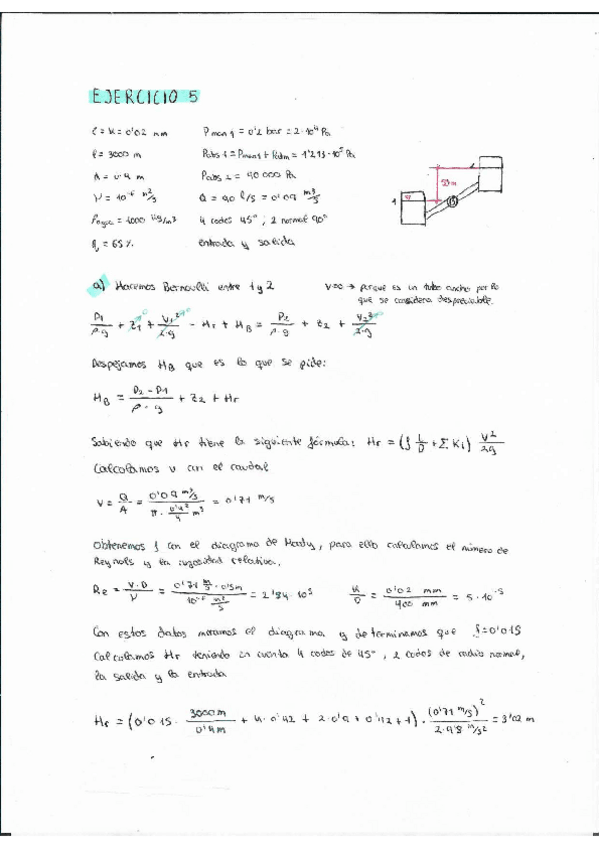 EJERCICIO 5
ε = K = 0'02 mm
Pman 1 = 0'2 bar = 2·10⁴ Pa
l = 3000 m
Pabs 1 = Pman1 + Patm = 1'213·10⁵ Pa
Pabs 2 = 90 000 Pa
ν = 10⁻⁶ m²/s
Q = 90 l/s = 0'09 m³/s
ρagua = 1000 kg/m³
4 codos 45°, 2 normal 90°
65 %
entrada y salida
1
a) Hacemos Bernoulli entre 1 y 2
V=0 → porque es un tubo ancho por lo
que se considera despreciable.
P1/ρ·g + Z1 + V1²/2·g - Hr + HB = P2/ρ·g + Z2 + V2²/2·g
Despejamos HB que es lo que se pide:
HB = P2 - P1/ρ·g + Z2 + Hr
Sabiendo que Hr tiene la siguiente fórmula: Hr = (f L/D + Σ Ki) V²/2g
Calculamos v con el caudal
V = Q/A = 0'09 m³/s / π · 0'4²/4 m² = 0'71 m/s
Obtenemos f con el diagrama de Moody, para ello calculamos el número de
Reynols y la rugosidad relativa.
Re = V·D/ν = 0'71 m/s · 0'4 m / 10⁻⁶ m²/s = 2'84·10⁵
K/D = 0'02 mm / 400 mm = 5·10⁻⁵
Con estos datos miramos el diagrama y determinamos que f=0'015
Calculamos Hr teniendo en cuenta 4 codos de 45°, 2 codos de radio normal,
la salida y la entrada
Hr = (0'015 · 3000 m/0'4 m + 4·0'42 + 2·0'9 + 0'42 + 1) · (0'71 m/s)²/2·9'8 m/s² = 3'02 m